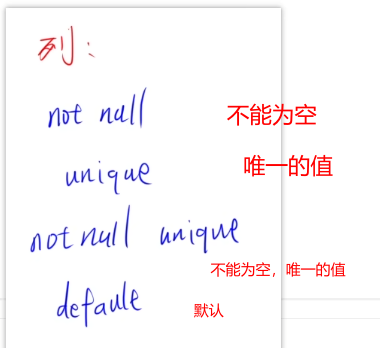 列:
not null 不能为空
unique 唯一的值
not null unique
不能为空，唯一的值
defaule 默认